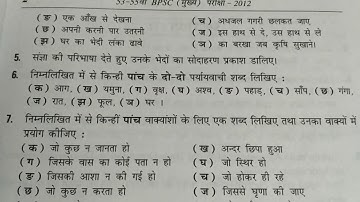 53-55वीं BPSC (मुख्य) परीक्षा - 2012
( ङ ) एक आँख से देखना ( च ) अधजल गगरी छलकत जाए
( छ ) अपनी करनी पार उतरनी ( ज ) इस हाथ से दे, उस हाथ से ले
( झ ) घर का भेदी लंका ढाबे ( ञ ) का बरखा जब कृषि सुखाने।
5. संज्ञा की परिभाषा देते हुए उनके भेदों का सोदाहरण प्रकाश डालिए।
6. निम्नलिखित में से किन्हीं पांच के दो-दो पर्यायवाची शब्द लिखिए :
( क ) आग, ( ख ) यमुना, ( ग ) वृक्ष, ( घ ) अश्व, ( ङ ) पहाड़, ( च ) साँप, ( छ ) गंगा,
( ज ) रात, ( झ ) फूल, ( ञ ) घर ।
7. निम्नलिखित में से किन्हीं पांच वाक्यांशों के लिए एक शब्द लिखिए तथा उनका वाक्यों में
प्रयोग कीजिए :
( क ) जो कुछ न जानता हो ( ख ) अन्दर छिपा हुआ
( ग ) जिसके वास का कोई पता न हो ( घ ) जो स्थिर हो
( ङ ) जिसकी आशा न की गई हो ( च ) जो होकर ही रहे
( छ ) जो कुछ न करता हो ( ज ) जिससे घृणा की जाए